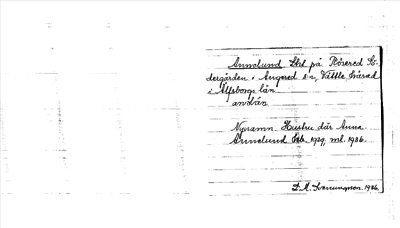 Annelund Lht på Rösered Sö-
dergården i Angered sn, Vättle härad
i Älfsborgs län.
använ.
Nynamn. Hustru där Anna
Annelund feb. 1929, ml. 1936.
D. A. 1936.